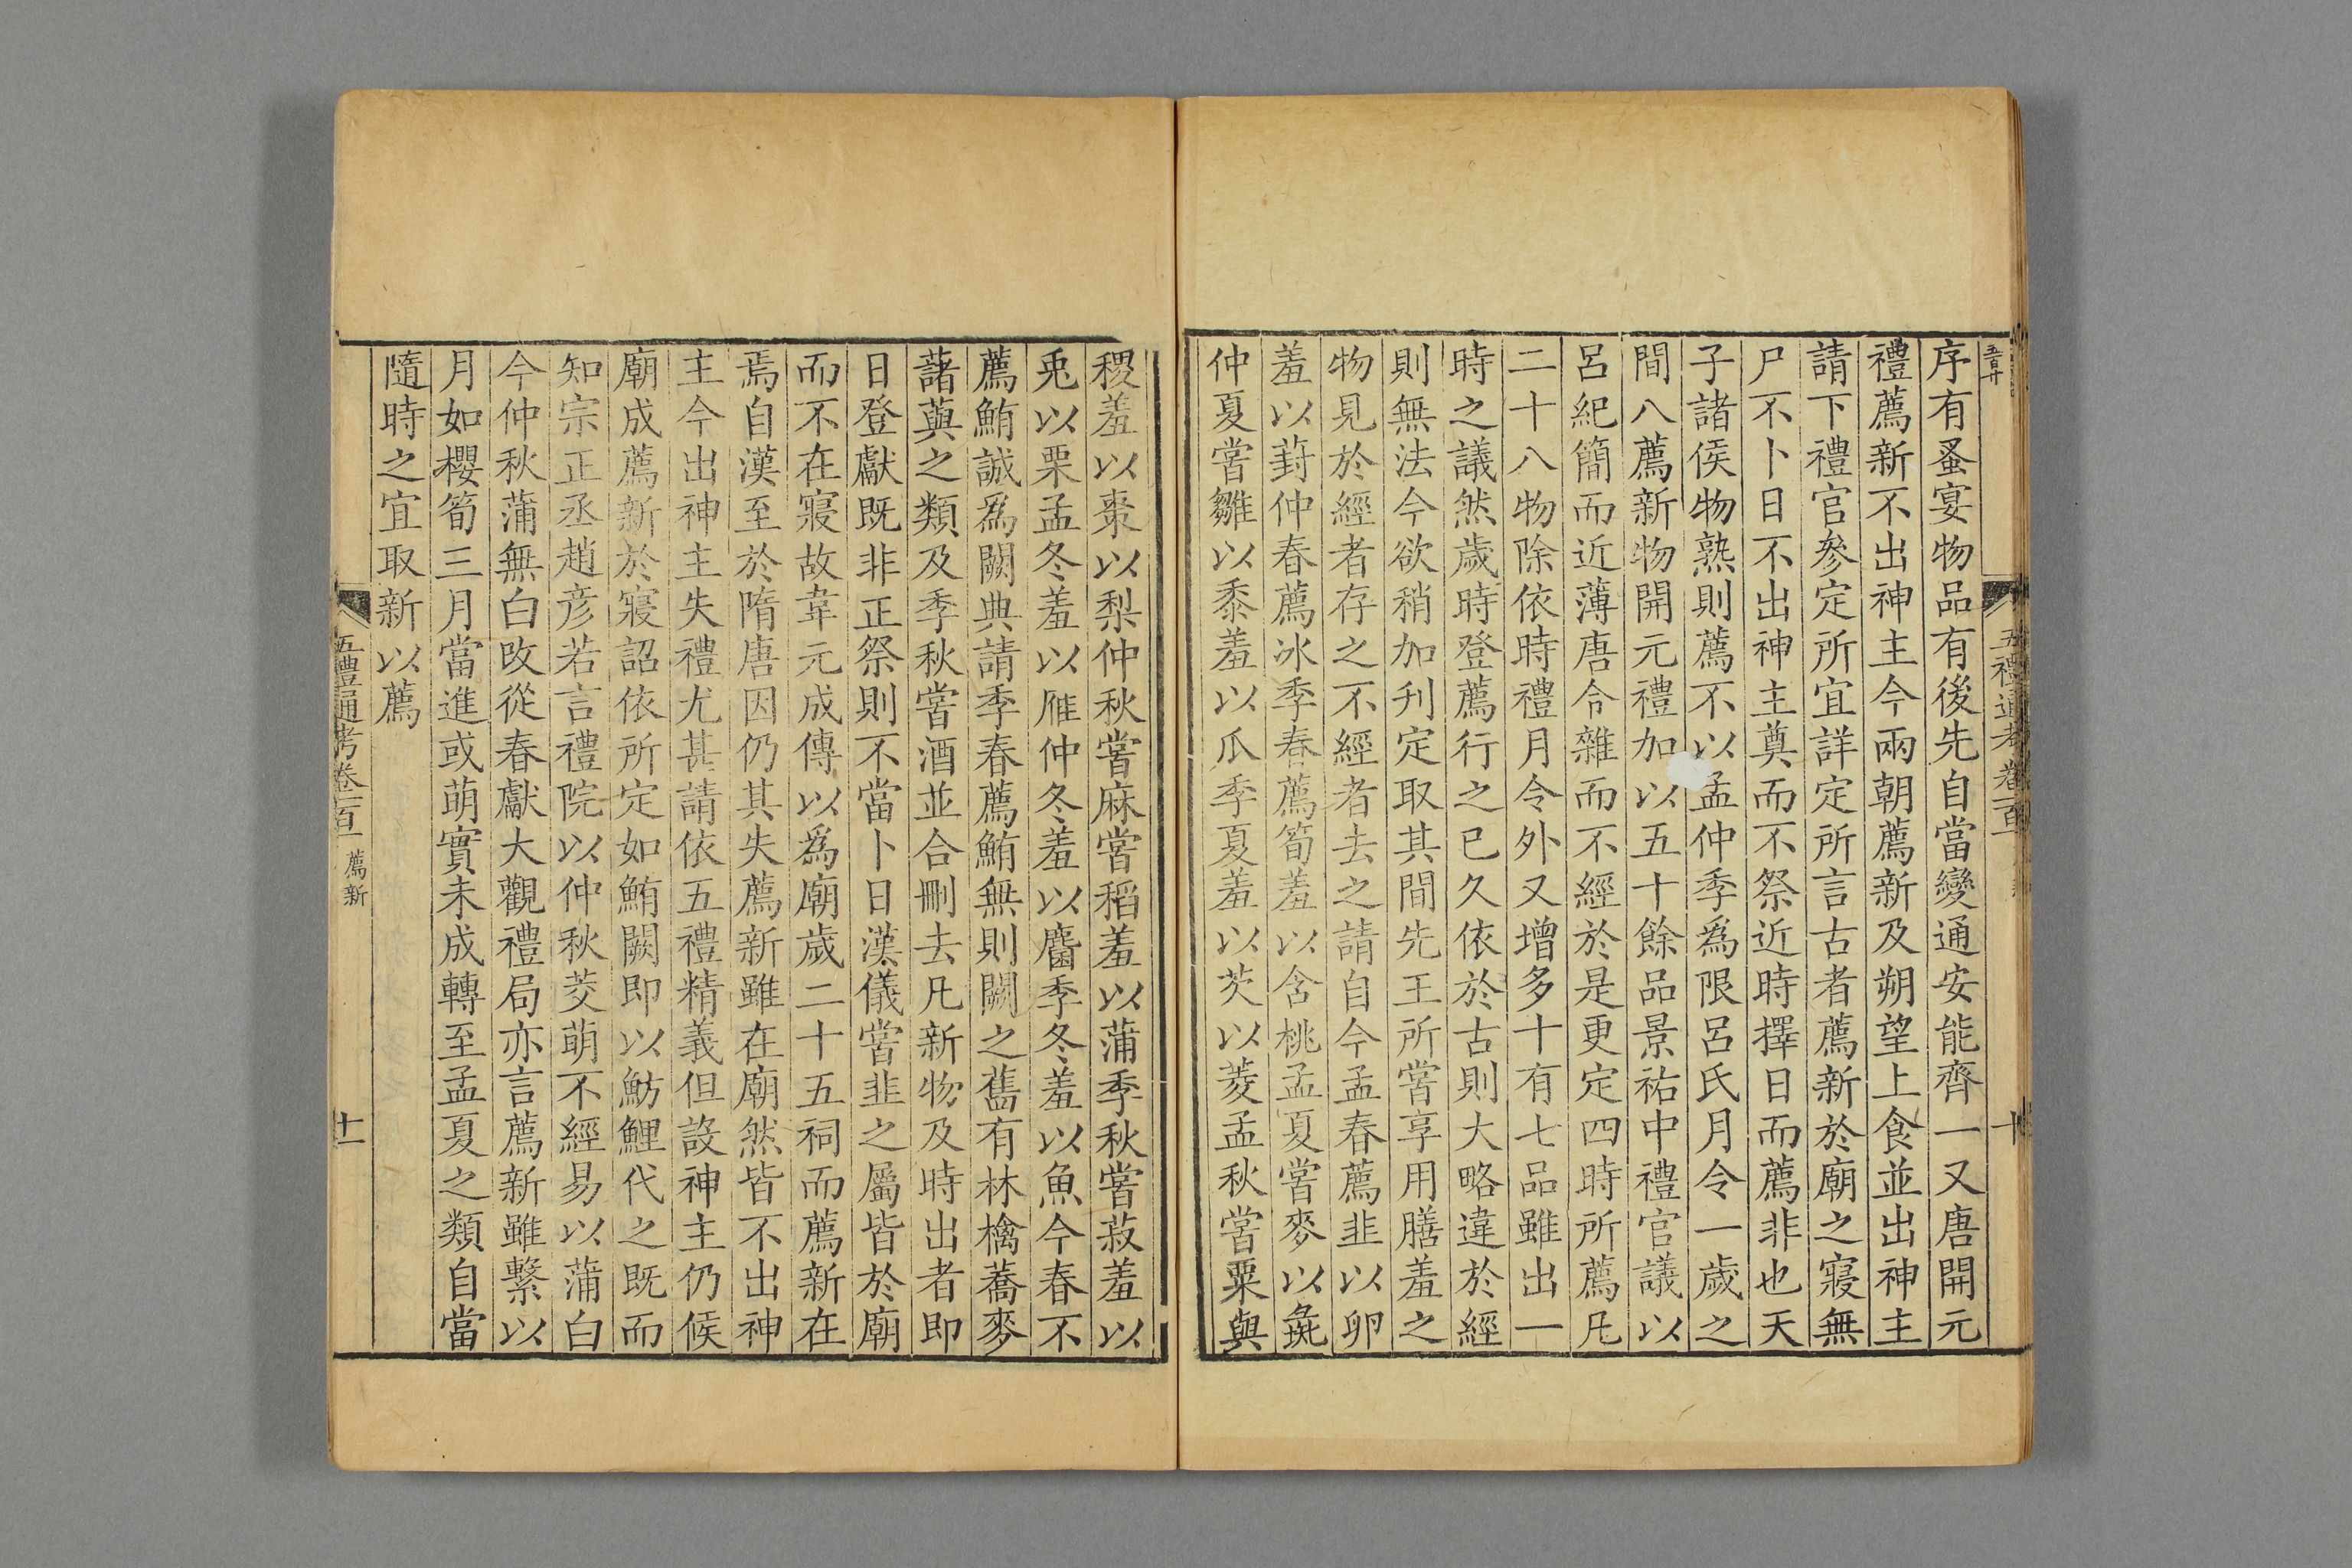 五禮通考卷一百 十
序有蚤宴物品有後先自當變通安能齊一又唐開元
禮薦新不出神主今兩朝薦新及朔望上食並出神主
請下禮官參定所宜詳定所言古者薦新於廟之寢無
尸不卜日不出神主奠而不祭近時擇日而薦非也天
子諸侯物熟則薦不以孟仲季爲限呂氏月令一歲之
間八薦新物開元禮加以五十餘品景祐中禮官議以
呂紀簡而近薄唐令雜而不經於是更定四時所薦凡
二十八物除依時禮月令外又增多十有七品雖出一
時之議然歲時登薦行之已久依於古則大略違於經
則無法今欲稍加刋定取其間先王所嘗享用膳羞之
物見於經者存之不經者去之請自今孟春薦韭以卵
羞以葑仲春薦冰季春薦筍羞以含桃孟夏嘗麥以彘
仲夏嘗雛以黍羞以瓜季夏羞以芡以菱孟秋嘗粟與
稷羞以棗以梨仲秋嘗麻嘗稻羞以蒲季秋嘗菽羞以
兎以栗孟冬羞以雁仲冬羞以麕季冬羞以魚今春不
薦鮪誠爲闕典請季春薦鮪無則闕之舊有林檎蕎麥
藷藇之類及季秋嘗酒並合刪去凡新物及時出者即
日登獻既非正祭則不當卜日漢儀嘗韭之屬皆於廟
而不在寢故韋元成傳以爲廟歲二十五祠而薦新在
焉自漢至於隋唐因仍其失薦新雖在廟然皆不出神
主今出神主失禮尤甚請依五禮精義但設神主仍候
廟成薦新於寢詔依所定如鮪闕即以魴鯉代之既而
知宗正丞趙彦若言禮院以仲秋茭萌不經易以蒲白
今仲秋蒲無白改從春獻大觀禮局亦言薦新雖繫以
月如櫻筍三月當進或萌實未成轉至孟夏之類自當
隨時之宜取新以薦
五禮通考卷一百 薦新 十一